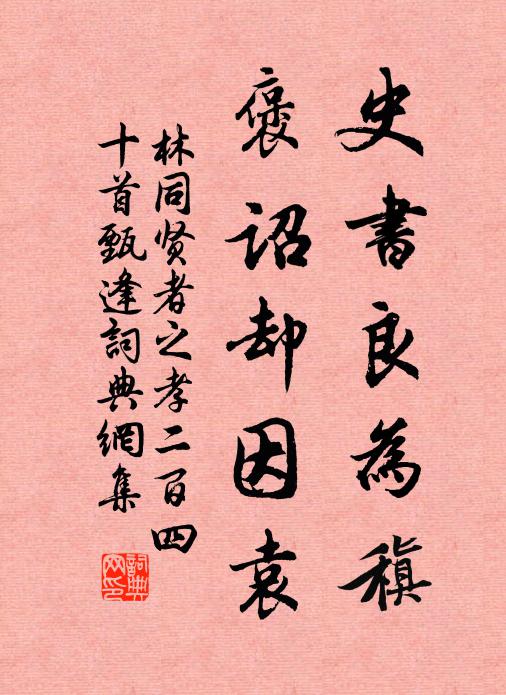 史書良為稹
褒詔却因袁
林同贤者之孝二百四
十首甄逢詞典網集
詞典
网印